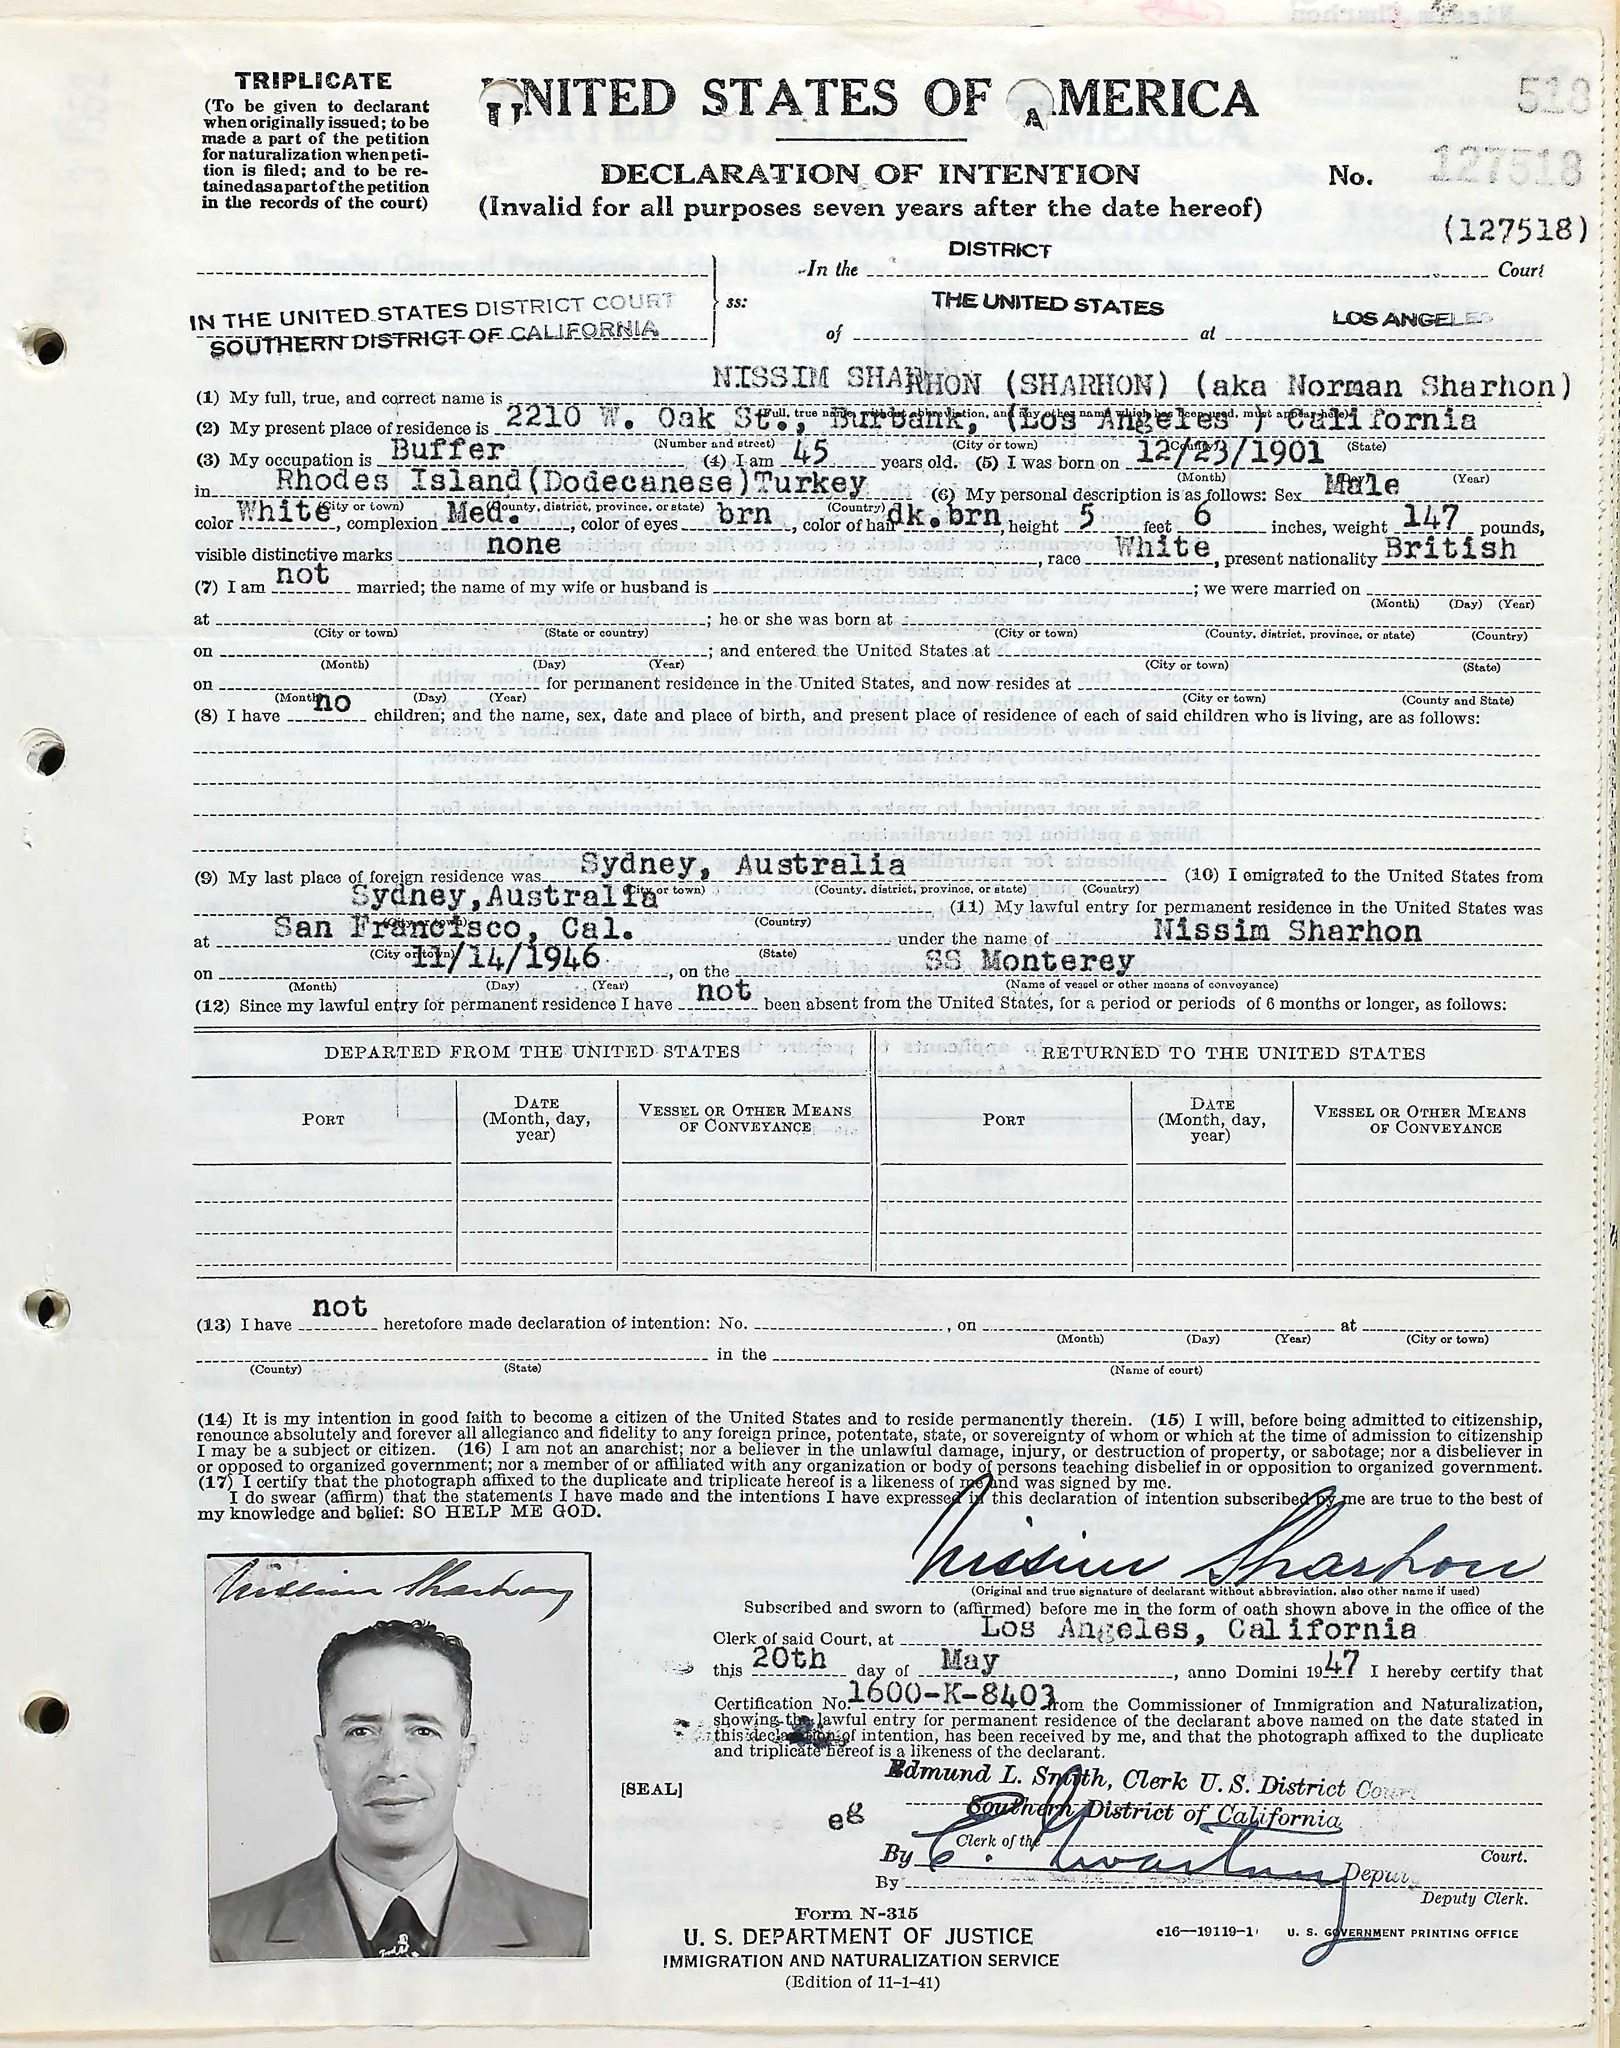 TRIPLICATE
(To be given to declarant
when originally issued; to be
made a part of the petition
for naturalization when peti-
tion is filed; and to be re-
tained as a part of the petition
in the records of the court)
UNITED STATES OF AMERICA
DECLARATION OF INTENTION
(Invalid for all purposes seven years after the date hereof)
518
No. 127518
(127518)
IN THE UNITED STATES DISTRICT COURT
SOUTHERN DISTRICT OF CALIFORNIA
ss:
In the DISTRICT Court
of THE UNITED STATES at LOS ANGELES
(1) My full, true, and correct name is NISSIM SHARHON (SHARHON) (aka Norman Sharhon)
(Full, true name, without abbreviation, and any other name which has been used, must appear here)
(2) My present place of residence is 2210 W. Oak St., Burbank, (Los Angeles) California
(Number and street) (City or town) (County) (State)
(3) My occupation is Buffer (4) I am 45 years old. (5) I was born on 12/23/1901
(Month) (Year)
in Rhodes Island (Dodecanese) Turkey (6) My personal description is as follows: Sex Male
(City or town) (County, district, province, or state) (Country)
color White, complexion Med., color of eyes brn, color of hair dk. brn, height 5 feet 6 inches, weight 147 pounds,
visible distinctive marks none, race White, present nationality British
(7) I am not married; the name of my wife or husband is ; we were married on
(Month) (Day) (Year)
at ; he or she was born at
(City or town) (State or country) (City or town) (County, district, province, or state) (Country)
on ; and entered the United States at
(Month) (Day) (Year) (City or town) (State)
on for permanent residence in the United States, and now resides at
(Month) (Day) (Year) (City or town) (County and State)
(8) I have no children; and the name, sex, date and place of birth, and present place of residence of each of said children who is living, are as follows:
(9) My last place of foreign residence was Sydney, Australia (10) I emigrated to the United States from
(City or town) (County, district, province, or state) (Country)
Sydney, Australia (11) My lawful entry for permanent residence in the United States was
(City or town) (Country)
at San Francisco, Cal. under the name of Nissim Sharhon
(City or town) (State)
on 11/14/1946, on the SS Monterey
(Month) (Day) (Year) (Name of vessel or other means of conveyance)
(12) Since my lawful entry for permanent residence I have not been absent from the United States, for a period or periods of 6 months or longer, as follows:
DEPARTED FROM THE UNITED STATES RETURNED TO THE UNITED STATES
PORT DATE (Month, day, year) VESSEL OR OTHER MEANS OF CONVEYANCE PORT DATE (Month, day, year) VESSEL OR OTHER MEANS OF CONVEYANCE
(13) I have not heretofore made declaration of intention: No. , on at
(Month) (Day) (Year) (City or town)
in the
(County) (State) (Name of court)
(14) It is my intention in good faith to become a citizen of the United States and to reside permanently therein. (15) I will, before being admitted to citizenship,
renounce absolutely and forever all allegiance and fidelity to any foreign prince, potentate, state, or sovereignty of whom or which at the time of admission to citizenship
I may be a subject or citizen. (16) I am not an anarchist; nor a believer in the unlawful damage, injury, or destruction of property, or sabotage; nor a disbeliever in
or opposed to organized government; nor a member of or affiliated with any organization or body of persons teaching disbelief in or opposition to organized government.
(17) I certify that the photograph affixed to the duplicate and triplicate hereof is a likeness of me and was signed by me.
I do swear (affirm) that the statements I have made and the intentions I have expressed in this declaration of intention subscribed by me are true to the best of
my knowledge and belief: SO HELP ME GOD.
Nissim Sharhon
Nissim Sharhon
(Original and true signature of declarant without abbreviation, also other name if used)
Subscribed and sworn to (affirmed) before me in the form of oath shown above in the office of the
Clerk of said Court, at Los Angeles, California
this 20th day of May, anno Domini 1947 I hereby certify that
Certification No. 1600-K-8403 from the Commissioner of Immigration and Naturalization,
showing the lawful entry for permanent residence of the declarant above named on the date stated in
this declaration of intention, has been received by me, and that the photograph affixed to the duplicate
and triplicate hereof is a likeness of the declarant.
Edmund L. Smith, Clerk U. S. District Court
[SEAL]
Southern District of California
eg
Clerk of the Court.
By Deputy
By
Deputy Clerk.
Form N-315
U. S. DEPARTMENT OF JUSTICE
IMMIGRATION AND NATURALIZATION SERVICE
(Edition of 11-1-41)
c16—19119-1 U. S. GOVERNMENT PRINTING OFFICE